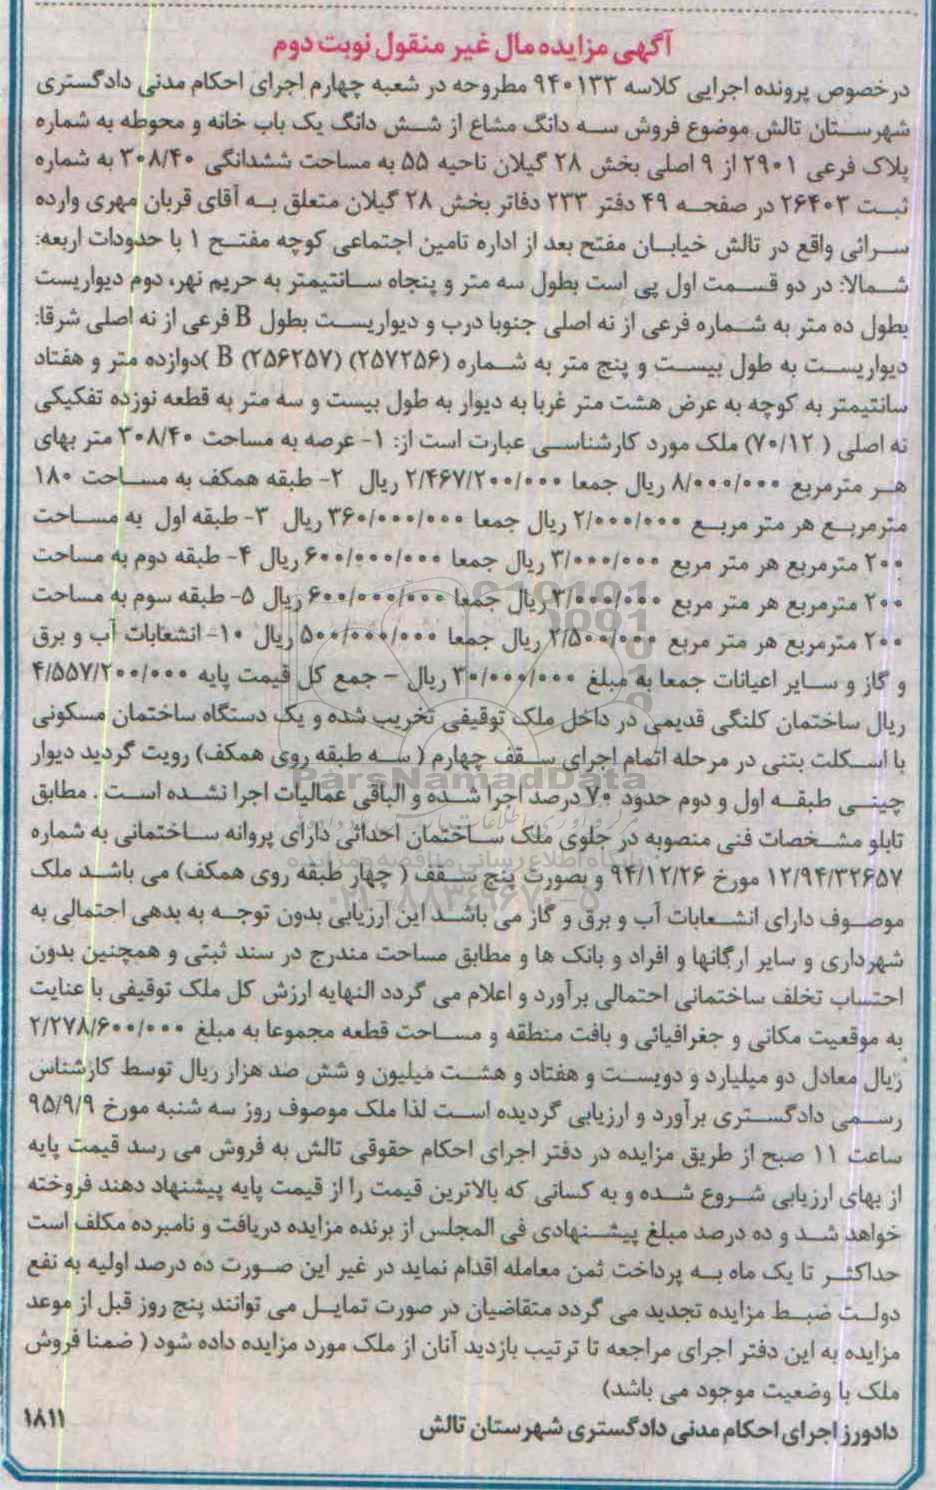 آگهی مزایده مال غیر منقول نوبت دوم
درخصوص پرونده اجرایی کلاسه ۹۴۰۱۳۳ مطروحه در شعبه چهارم اجرای احکام مدنی دادگستری
شهرستان تالش موضوع فروش سه دانگ مشاع از شش دانگ یک باب خانه و محوطه به شماره
پلاک فرعی ۲۹۰۱ از ۹ اصلی بخش ۲۸ گیلان ناحیه ۵۵ به مساحت ششدانگی ۳۰۸/۴۰ به شماره
ثبت ۲۶۴۰۳ در صفحه ۴۹ دفتر ۲۳۳ دفاتر بخش ۲۸ گیلان متعلق به آقای قربان مهری وارده
سرائی واقع در تالش خیابان مفتح بعد از اداره تامین اجتماعی کوچه مفتح ۱ با حدودات اربعه:
شمالا: در دو قسمت اول پی است بطول سه متر و پنجاه سانتیمتر به حریم نهر، دوم دیواریست
بطول ده متر به شماره فرعی از نه اصلی جنوبا درب و دیواریست بطول B فرعی از نه اصلی شرقا:
دیواریست به طول بیست و پنج متر به شماره (۲۵۷۲۵۶) (۲۵۶۲۵۷) B )دوازده متر و هفتاد
سانتیمتر به کوچه به عرض هشت متر غربا به دیوار به طول بیست و سه متر به قطعه نوزده تفکیکی
نه اصلی ( ۷۰/۱۲) ملک مورد کارشناسی عبارت است از: ۱- عرصه به مساحت ۳۰۸/۴۰ متر بهای
هر مترمربع ۸/۰۰۰/۰۰۰ ریال جمعا ۲/۴۶۷/۲۰۰/۰۰۰ ریال ۲- طبقه همکف به مساحت ۱۸۰
مترمربع هر متر مربع ۲/۰۰۰/۰۰۰ ریال جمعا ۳۶۰/۰۰۰/۰۰۰ ریال ۳- طبقه اول به مساحت
۲۰۰ مترمربع هر متر مربع ۳/۰۰۰/۰۰۰ ریال جمعا ۶۰۰/۰۰۰/۰۰۰ ریال ۴- طبقه دوم به مساحت
۲۰۰ مترمربع هر متر مربع ۳/۰۰۰/۰۰۰ ریال جمعا ۶۰۰/۰۰۰/۰۰۰ ریال ۵- طبقه سوم به مساحت
۲۰۰ مترمربع هر متر مربع ۲/۵۰۰/۰۰۰ ریال جمعا ۵۰۰/۰۰۰/۰۰۰ ریال ۱۰- انشعابات آب و برق
و گاز و سایر اعیانات جمعا به مبلغ ۳۰/۰۰۰/۰۰۰ ریال - جمع کل قیمت پایه ۴/۵۵۷/۲۰۰/۰۰۰
ریال ساختمان کلنگی قدیمی در داخل ملک توقیفی تخریب شده و یک دستگاه ساختمان مسکونی
با اسکلت بتنی در مرحله اتمام اجرای سقف چهارم ( سه طبقه روی همکف) رویت گردید دیوار
چینی طبقه اول و دوم حدود ۷۰ درصد اجرا شده و الباقی عمالیات اجرا نشده است . مطابق
تابلو مشخصات فنی منصوبه در جلوی ملک ساختمان احداثی دارای پروانه ساختمانی به شماره
۱۲/۹۴/۳۲۶۵۷ مورخ ۹۴/۱۲/۲۶ و بصورت پنج سقف ( چهار طبقه روی همکف) می باشد ملک
موصوف دارای انشعابات آب و برق و گاز می باشد این ارزیابی بدون توجه به بدهی احتمالی به
شهرداری و سایر ارگانها و افراد و بانک ها و مطابق مساحت مندرج در سند ثبتی و همچنین بدون
احتساب تخلف ساختمانی احتمالی برآورد و اعلام می گردد النهایه ارزش کل ملک توقیفی با عنایت
به موقعیت مکانی و جغرافیائی و بافت منطقه و مساحت قطعه مجموعا به مبلغ ۲/۲۷۸/۶۰۰/۰۰۰
ریال معادل دو میلیارد و دویست و هفتاد و هشت میلیون و شش صد هزار ریال توسط کارشناس
رسمی دادگستری برآورد و ارزیابی گردیده است لذا ملک موصوف روز سه شنبه مورخ ۹۵/۹/۹
ساعت ۱۱ صبح از طریق مزایده در دفتر اجرای احکام حقوقی تالش به فروش می رسد قیمت پایه
از بهای ارزیابی شروع شده و به کسانی که بالاترین قیمت را از قیمت پایه پیشنهاد دهند فروخته
خواهد شد و ده درصد مبلغ پیشنهادی فی المجلس از برنده مزایده دریافت و نامبرده مکلف است
حداکثر تا یک ماه به پرداخت ثمن معامله اقدام نماید در غیر این صورت ده درصد اولیه به نفع
دولت ضبط مزایده تجدید می گردد متقاضیان در صورت تمایل می توانند پنج روز قبل از موعد
مزایده به این دفتر اجرای مراجعه تا ترتیب بازدید آنان از ملک مورد مزایده داده شود ( ضمنا فروش
ملک با وضعیت موجود می باشد)
دادورز اجرای احکام مدنی دادگستری شهرستان تالش ۱۸۱۱
ParsNamadData
پایگاه اطلاع رسانی مناقصه و مزایده